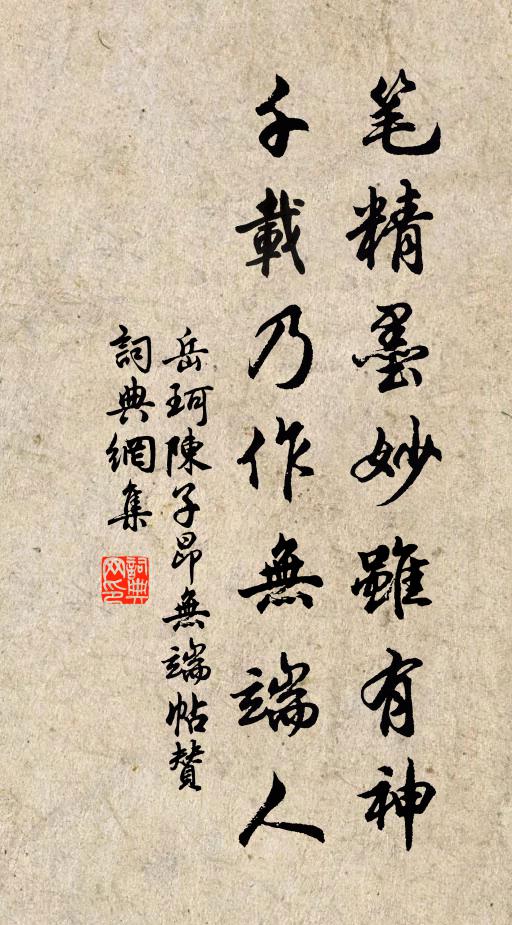 笔精墨妙雖有神
千載乃作無端人
岳珂陳子昂無端帖贊
詞典網集
詞典網印